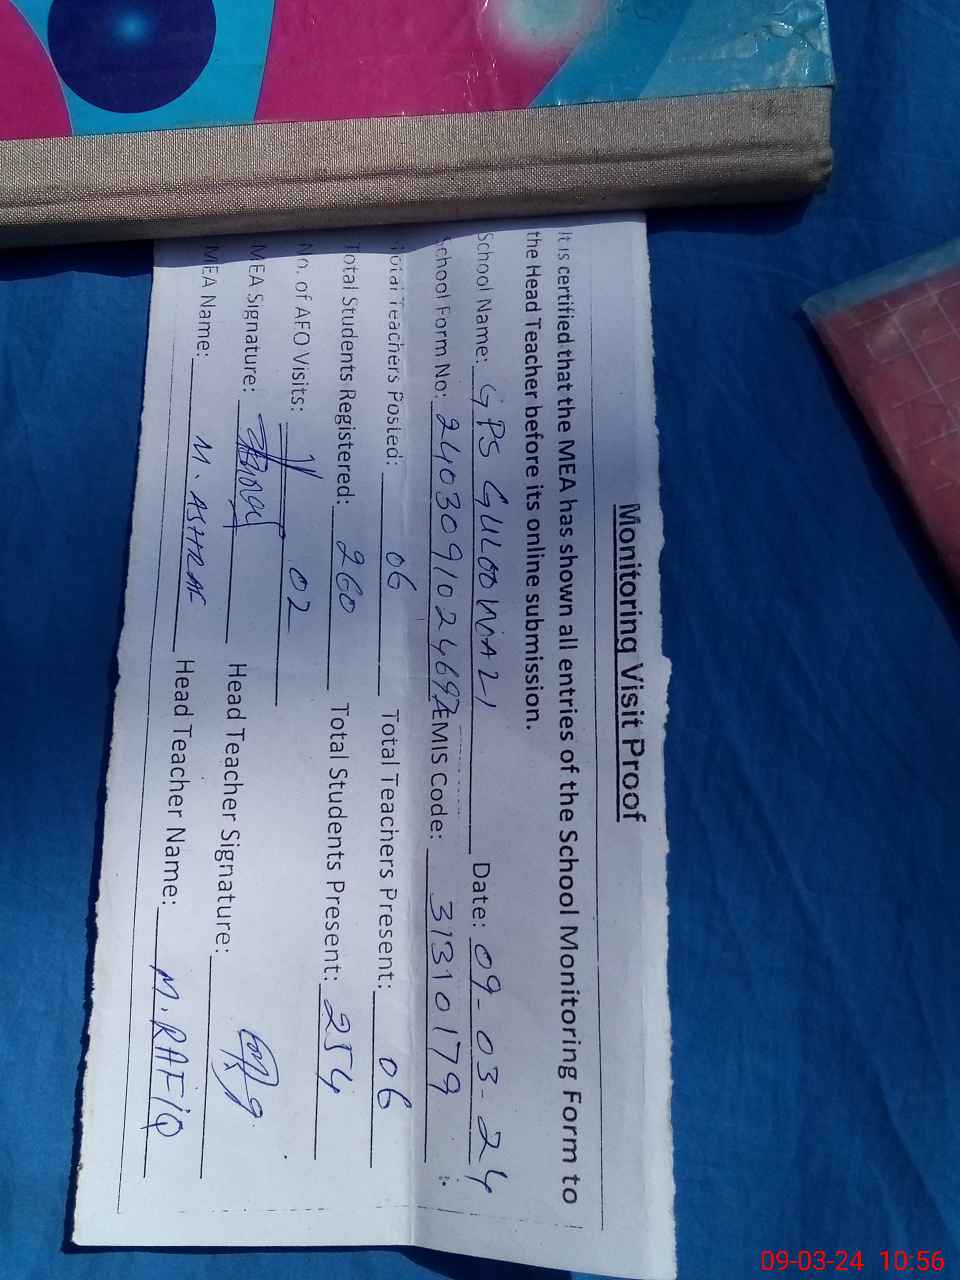 Monitoring Visit Proof
It is certified that the MEA has shown all entries of the School Monitoring Form to
the Head Teacher before its online submission.
School Name: GPS GULOOWALI Date: 09-03-24
School Form No: 2403091024697 EMIS Code: 31310179
Total Teachers Posted: 06 Total Teachers Present: 06
Total Students Registered: 260 Total Students Present: 254
No. of AFO Visits: 02
MEA Signature: Head Teacher Signature:
MEA Name: M. ASHRAF Head Teacher Name: M. RAFIQ
09-03-24 10:56